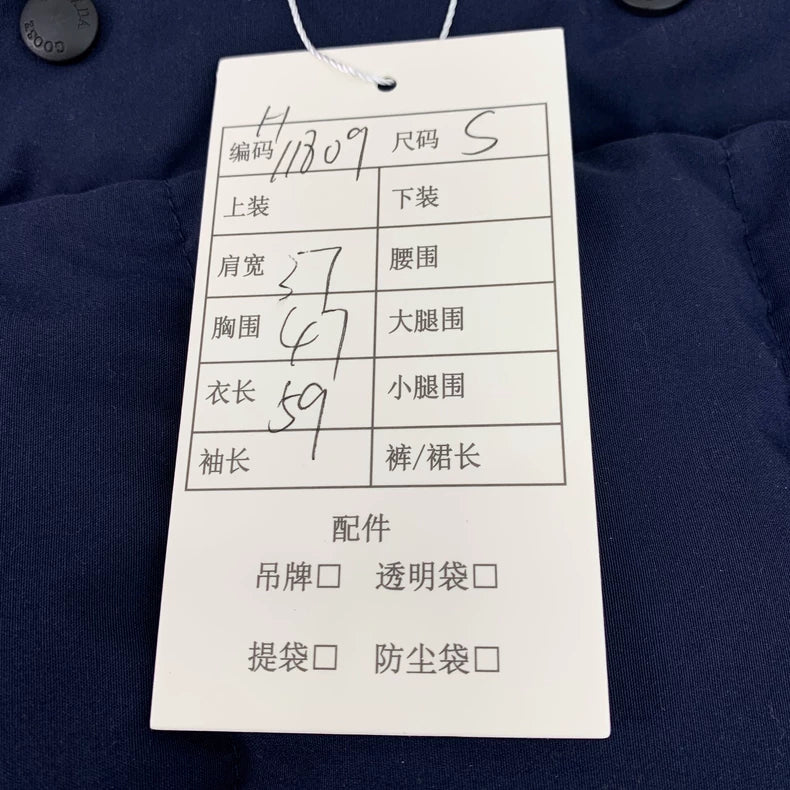 GOOSE
编码 H11809 尺码 S
上装 下装
肩宽 37 腰围
胸围 47 大腿围
衣长 59 小腿围
袖长 裤/裙长
配件
吊牌□ 透明袋□
提袋□ 防尘袋□